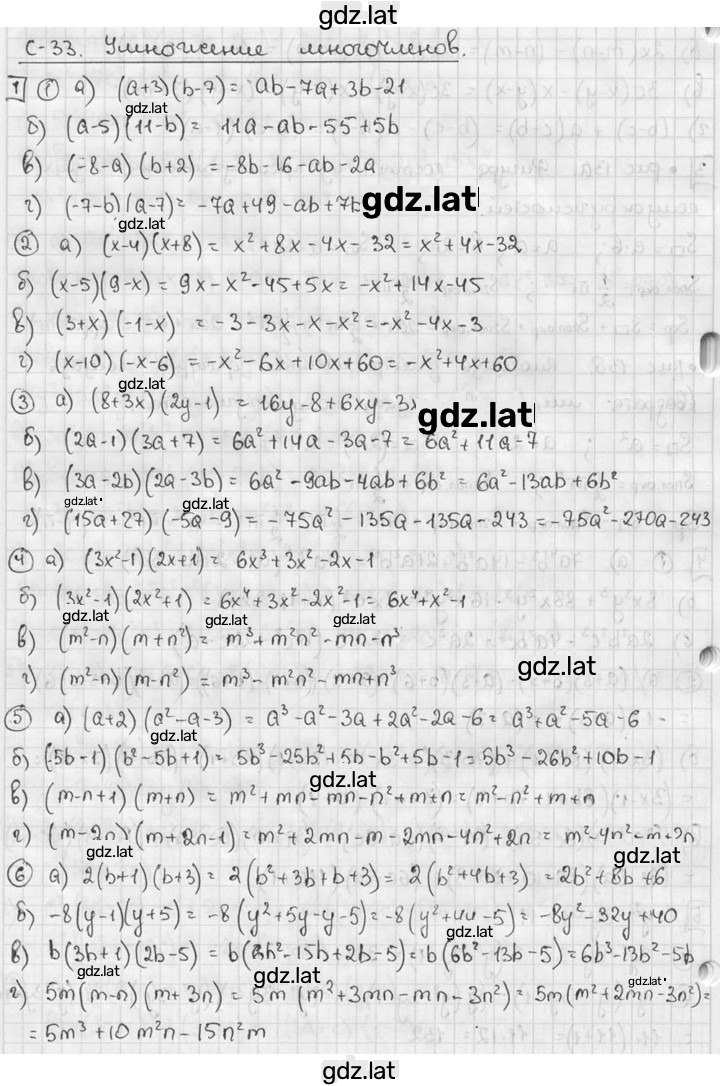 gdz.lat
С-33. Умножение многочленов.
1 ① а) (a+3)(b-7) = ab-7a+3b-21
gdz.lat
б) (a-5)(11-b) = 11a-ab-55+5b
в) (-8-a)(b+2) = -8b-16-ab-2a
г) (-7-b)(a-7) = -7a+49-ab+7b
gdz.lat
gdz.lat
② а) (x-4)(x+8) = x²+8x-4x-32 = x²+4x-32
б) (x-5)(9-x) = 9x-x²-45+5x = -x²+14x-45
в) (3+x)(-1-x) = -3-3x-x-x² = -x²-4x-3
г) (x-10)(-x-6) = -x²-6x+10x+60 = -x²+4x+60
gdz.lat
③ а) (8+3x)(2y-1) = 16y-8+6xy-3x
gdz.lat
б) (2a-1)(3a+7) = 6a²+14a-3a-7 = 6a²+11a-7
в) (3a-2b)(2a-3b) = 6a²-9ab-4ab+6b² = 6a²-13ab+6b²
gdz.lat gdz.lat
г) (15a+27)(-5a-9) = -75a²-135a-135a-243 = -75a²-270a-243
④ а) (3x²-1)(2x+1) = 6x³+3x²-2x-1
б) (3x²-1)(2x²+1) = 6x⁴+3x²-2x²-1 = 6x⁴+x²-1
gdz.lat gdz.lat gdz.lat
в) (m²-n)(m+n²) = m³+m²n²-mn-n³
gdz.lat
г) (m²-n)(m-n²) = m³-m²n²-mn+n³
⑤ а) (a+2)(a²-a-3) = a³-a²-3a+2a²-2a-6 = a³+a²-5a-6
gdz.lat
б) (5b-1)(b²-5b+1) = 5b³-25b²+5b-b²+5b-1 = 5b³-26b²+10b-1
gdz.lat
в) (m-n+1)(m+n) = m²+mn-mn-n²+m+n = m²-n²+m+n
г) (m-2n)(m+2n-1) = m²+2mn-m-2mn-4n²+2n = m²-4n²-m+2n
gdz.lat gdz.lat gdz.lat
⑥ а) 2(b+1)(b+3) = 2(b²+3b+b+3) = 2(b²+4b+3) = 2b²+8b+6
б) -8(y-1)(y+5) = -8(y²+5y-y-5) = -8(y²+4y-5) = -8y²-32y+40
gdz.lat gdz.lat
в) b(3b+1)(2b-5) = b(6b²-15b+2b-5) = b(6b²-13b-5) = 6b³-13b²-5b
gdz.lat gdz.lat gdz.lat
г) 5m(m-n)(m+3n) = 5m(m²+3mn-mn-3n²) = 5m(m²+2mn-3n²) =
= 5m³+10m²n-15n²m
gdz.lat